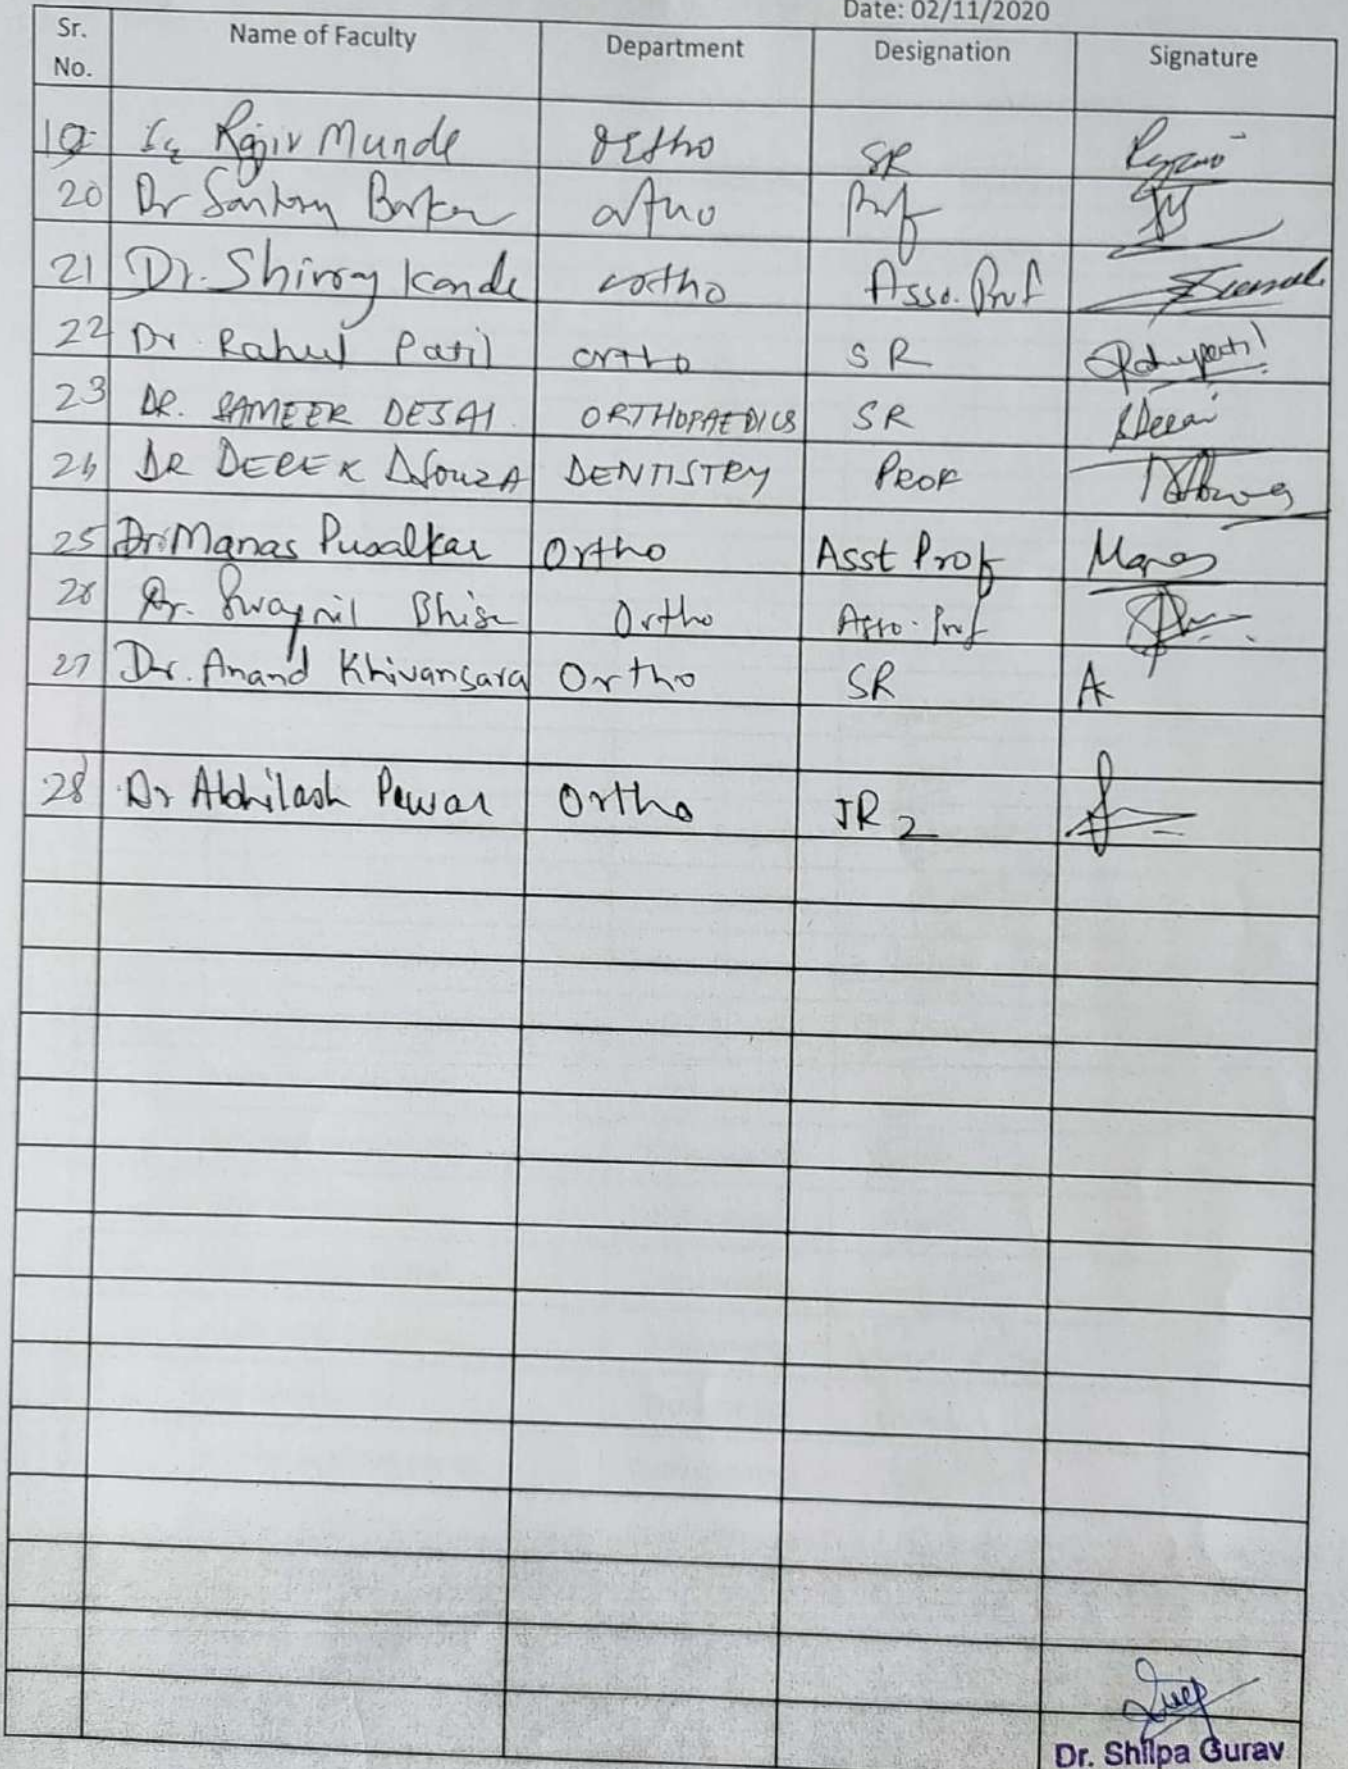 Date: 02/11/2020
Sr. No. Name of Faculty Department Designation Signature
19 Rajiv Munde Ortho SR
20 Dr Ortho Prof
21 Dr. Shivraj Kande ortho Asso. Prof
22 Dr. Rahul Patil ortho SR Rahulpatil
23 DR. SAMEER DESAI ORTHOPAEDICS SR SDesai
24 DR DEREK DSouzA DENTISTRY PROF
25 Dr. Manas Pusalkar Ortho Asst Prof Manas
26 Dr. Swapnil Bhise Ortho Asso. Prof
27 Dr. Anand Khivansara Ortho SR AK
28 Dr Abhilash Pawar Ortho JR 2
Dr. Shilpa Gurav